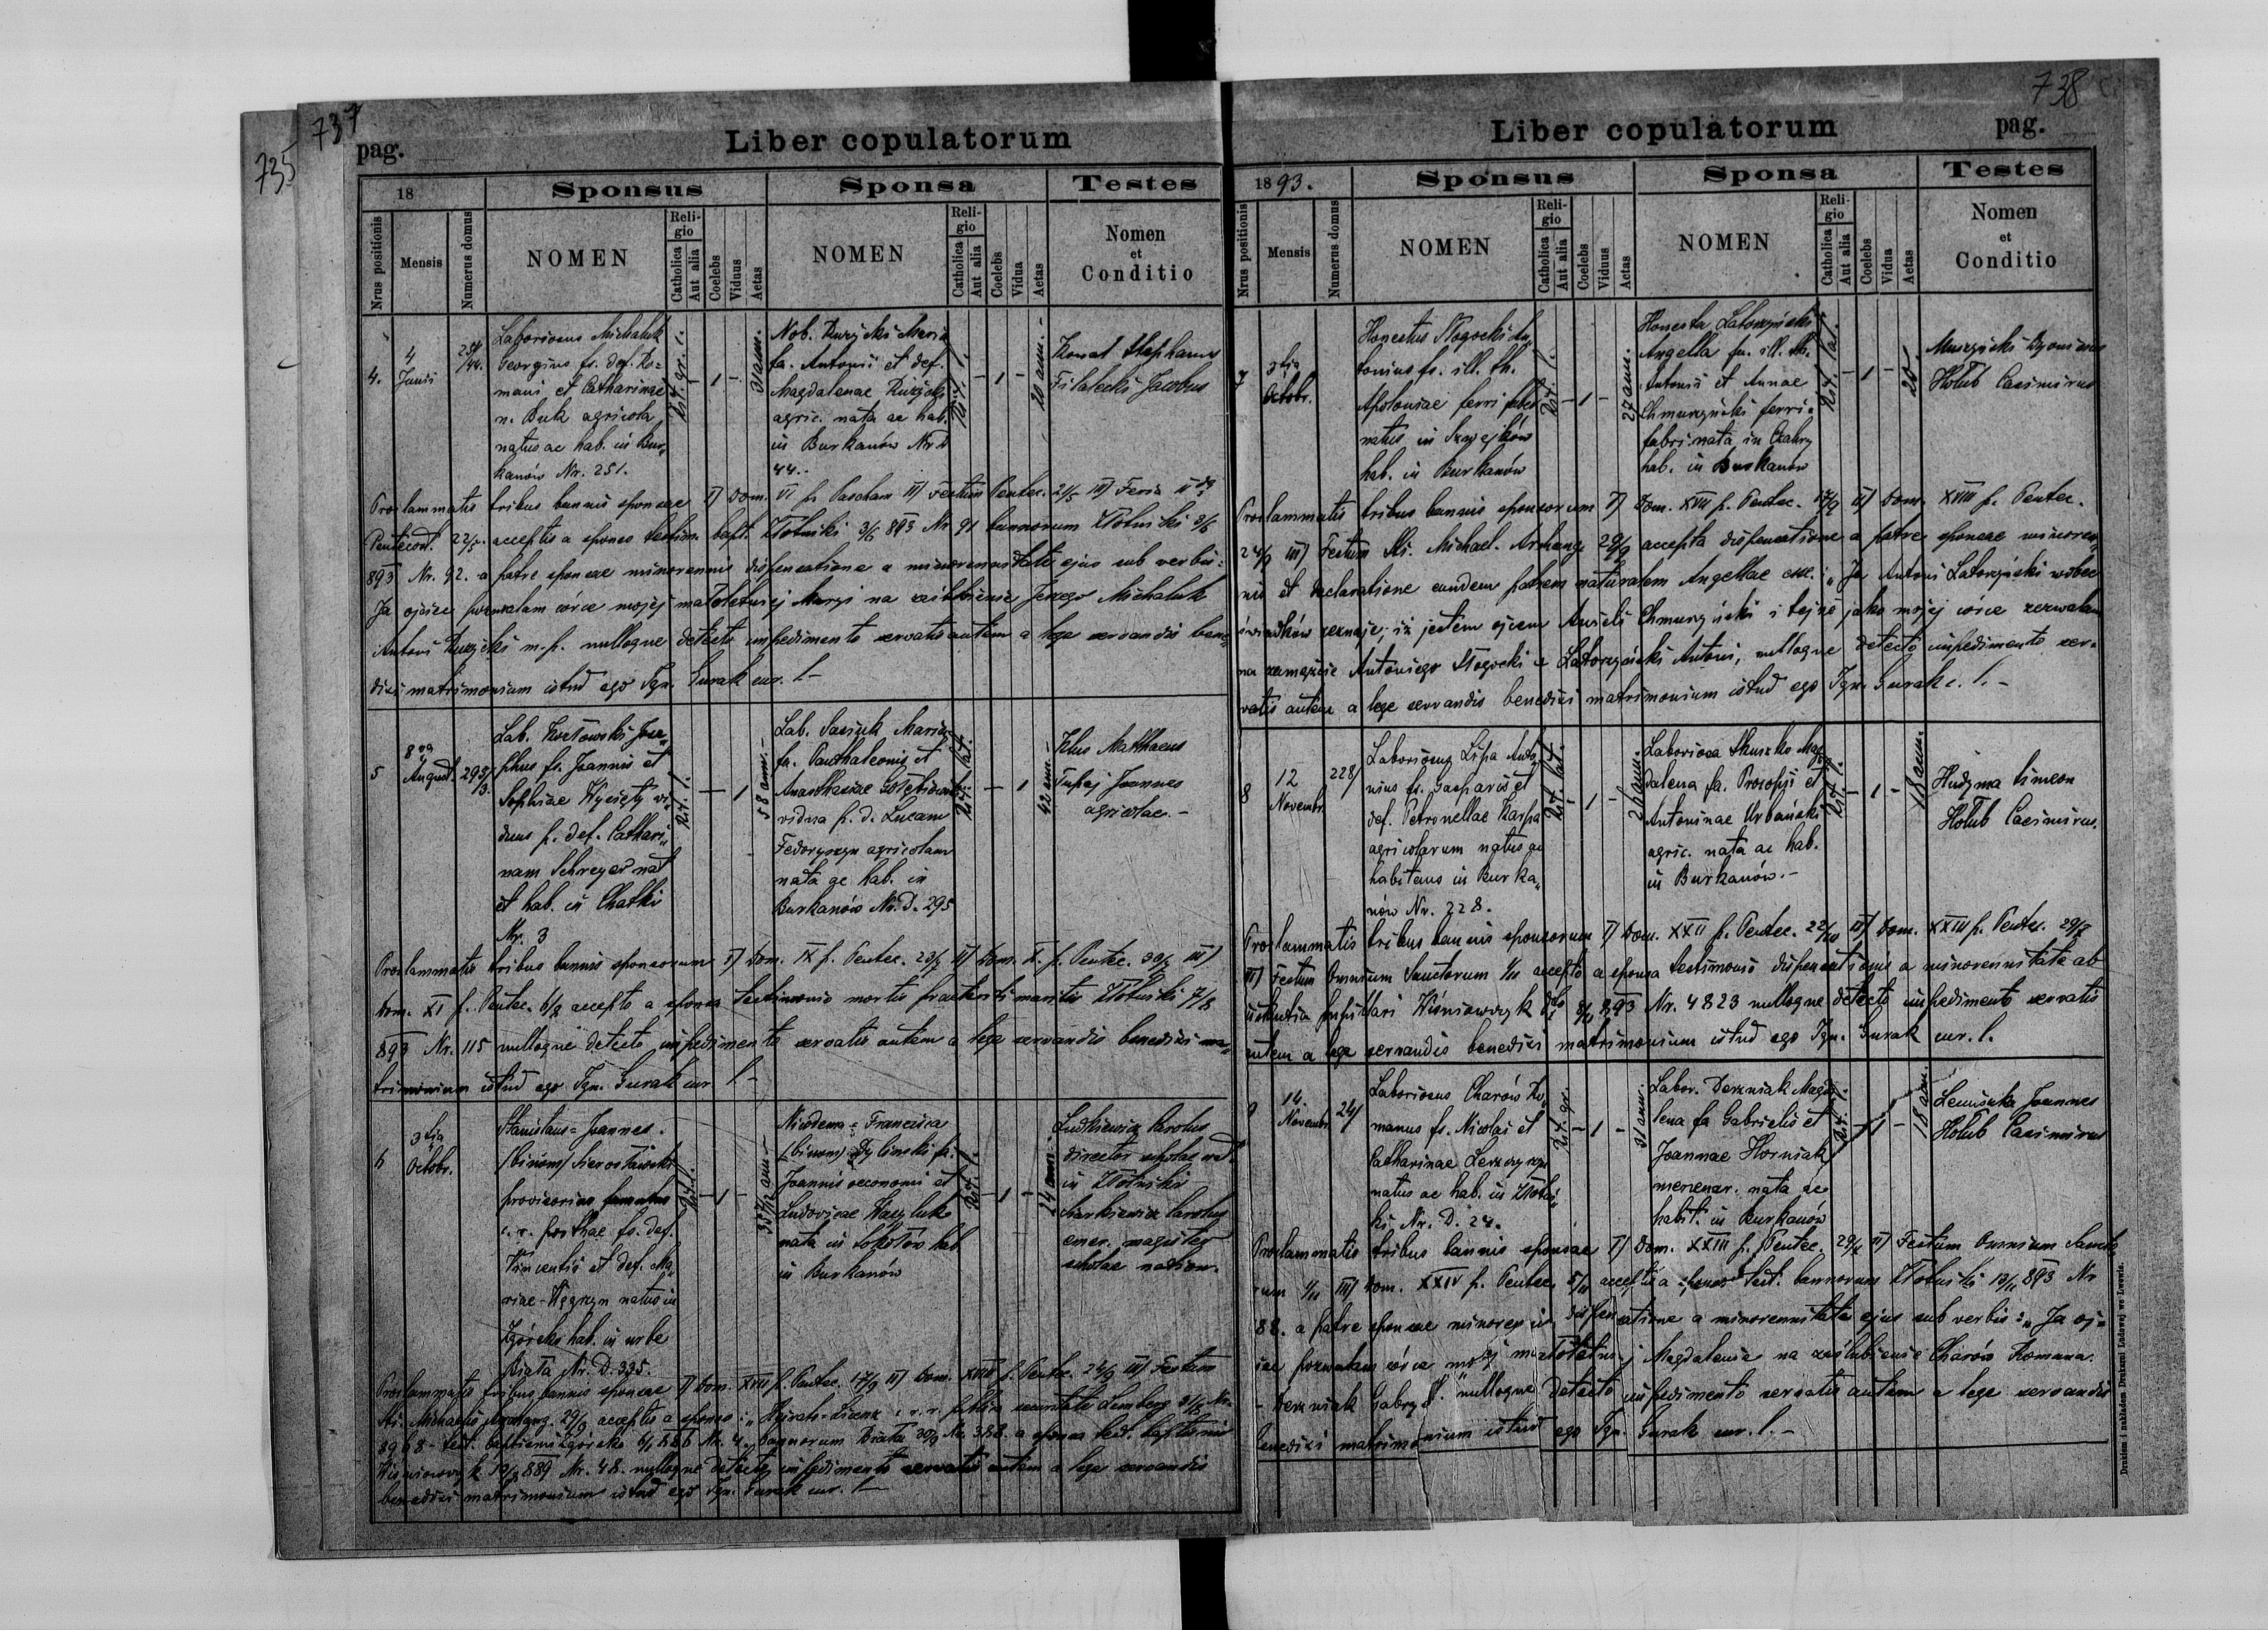 735
737
pag.
Liber copulatorum
18
Sponsus
Sponsa
Testes
Nrus positionis
Mensis
Numerus domus
NOMEN
Religio
Catholica
Aut alia
Coelebs
Viduus
Aetas
NOMEN
Religio
Catholica
Aut alia
Coelebs
Vidua
Aetas
Nomen
et
Conditio
4.
4
Junii
251/44.
Laboriosus Michaluk
Georgius fs. def. Ro=
mani et Catharinae
n. Buk agricola
natus ac hab. in Bur„
kanów Nr. 251.
rit. gr. c.
1
31 ann.
Nob. Ruzycki Maria
fa. Antonii et def.
Magdalenae
agric. nata ac hab.
in Burkanów Nr. d
44.
rit. l.
1
20 ann.
Konat Stephanus
Filatecki Jacobus
Proclammatis tribus bannis sponsae I) Dom. VI p. Pascham II) Festum Pentec. 21/5 III) Feria II da
Pentecost. 22/5. acceptis a sponso testim. bapt. Złotniki 3/6 893 Nr 91 bannorum Złotniki 3/6
893 Nr. 92. a patre sponsae minorennis dispensatione a minorennitate ejus sub verbis:
Ja ojciec pozwalam córce mojej małoletniej Maryi na zaślubienie Jerzego Michaluk
Antoni Ruzycki m.p. nulloque detecto impedimento servatis autem a lege servandis bene„
dixi matrimonium istud ego Ign. Gurak cur. l.
5
8va
August.
295/3.
Lab. Jose„
phus fs. Joannis et
Sophiae Wycięty vi„
duus p. def. Cathari„
nam Schreyer nat
et hab. in Chatki
Nr. 3
rit. l.
1
58 ann.
Lab. Sasiuk Maria
fa. Panthaleonis et
Anasthasiae
vidua p. d. Lucam
Fedoryszyn agricolam
nata ac hab. in
Burkanów Nr. D. 295
rit. lat.
1
42 ann.
Klus Matthaeus
Tupaj Joannes
agricolae.
Proclammatis tribus bannis sponsorum I) Dom. IX p. Pentec. 23/7 II) Dom. X. p. Pentec. 30/7 III)
Dom. XI p. Pentec. 6/8 accepto a sponsa testimonio mortis praeteriti mariti Złotniki 7/8
893 Nr. 115 nulloque detecto impedimento servatis autem a lege servandis benedixi ma„
trimonium istud ego Ign. Gurak cur. l.
6
3tia
Octobr.
Stanislaus=Joannes
(binom) Sierosławski
provisorius
c. r. porthae fs. def.
Vincentii et def. Ma„
riae Węgrzyn natus in
Zgórsko hab. in urbe
Biała Nr. D. 335.
rit. l.
1
Nicodema=Francisca
(binom) Dylinski fa.
Joannis oeconomi et
Ludovicae
nata in Sokołów hab.
in Burkanów
rit. l.
1
24 ann.
Ludkiewicz Carolus
director scholae nat.
in Złotniki
Carolus
emer. magister
scholae nation.
Proclammatis tribus bannis sponsae I) Dom. XVII p. Pentec. 17/9 II) Dom. XVIII p. Pentec. 24/9 III) Festum
Sti. Michaelis Archang. 29/9 acceptis a sponso: „Heirats=Licenz c. r. Lemberg 31/8 Nr.
8968 test. baptismi Zgórsko Nr. 4. bannorum Biała 30/9 Nr. 388. a sponsa test. baptismi
Wiśniowczyk 889 Nr. 48. nulloque detecto impedimento servatis autem a lege servandis
benedixi matrimonium istud ego Ign. Gurak cur. l.
738
Liber copulatorum
pag.
1893.
Sponsus
Sponsa
Testes
Nrus positionis
Mensis
Numerus domus
NOMEN
Religio
Catholica
Aut alia
Coelebs
Viduus
Aetas
NOMEN
Religio
Catholica
Aut alia
Coelebs
Vidua
Aetas
Nomen
et
Conditio
7
3tia
Octobr.
Honestus An„
tonius fs. ill. th.
Apoloniae ferri faber
natus in Szwejków
hab. in Burkanów
rit. l.
1
27 ann.
Honesta Latoszyński
Angella fa. ill. th.
Antonii et Annae
Chmurzyński ferri=
fabri nata in Czahry
hab. in Burkanów
rit. lat.
1
20
Muszyński Dyonisius
Hołub Casimirus
Proclammatis tribus bannis sponsorum I) Dom. XVII p. Pentec. 17/9 II) Dom. XVIII p. Pentec.
24/9 III) Festum Sti. Michael. Archang. 29/9 accepta dispensatione a patre sponsae minoren„
nis et declaratione eundem patrem naturalem Angellae esse: „Ja Antoni Latoszyński wobec
świadków zeznaję, iż jestem ojcem Anieli Chmurzyński i tejże jako mojej córce zezwalam
na zamęźcie Antoniego Latoszyński Antoni, nulloque detecto impedimento ser„
vatis autem a lege servandis benedixi matrimonium istud ego Ign. Gurak c. l.
8
12
Novembr.
228/
Laboriosus Lipa Anto„
nius fs. Gasparis et
def. Petronellae Karpa
agricolarum natus ac
habitans in Burka„
nów Nr. 228.
rit. lat.
1
26 ann.
Laboriosa Mag„
dalena fa. Procopii et
Antoninae Urbański
agric. nata ac hab.
in Burkanów.
rit. l.
1
18 ann.
Hudyma Simeon
Hołub Casimirus.
Proclammatis tribus bannis sponsorum I) Dom. XXII p. Pentec. 22/10 II) Dom. XXIII p. Pentec. 29/X
III) Festum Omnium Sanctorum 1/11 accepto a sponsa testimonio dispensationis a minorennitate ab
instantia pupillari Wiśniowczyk dto 893 Nr. 4823 nulloque detecto impedimento servatis
autem a lege servandis benedixi matrimonium istud ego Ign. Gurak cur. l.
9
14.
Novembr.
24/
Laboriosus Charów Ro„
manus fs. Nicolai et
Catharinae
natus ac hab. in Złotni„
ki Nr. D. 24.
rit. gr.
1
31 ann.
Labor. Derzniak Magda„
lena fa Gabrielis et
Joannae Horniak
mercenar. nata ac
habit. in Burkanów
rit. l.
1
18 ann.
Joannes
Hołub Casimirus
Proclammatis tribus bannis sponsae I) Dom. XXIII p. Pentec. 29/X II) Festum Omnium Sancto
rum 1/11 III) Dom. XXIV p. Pentec. 5/11 acceptis a sponso test. bannorum Złotniki 13/11 893 Nr
88. a patre sponsae minorennis dispensatione a minorennitate ejus sub verbis: „Ja oj„
ciec pozwalam córce mojej małoletniej Magdalenie na zaślubienie Charów Romana.
Derzniak Gabryel." nulloque detecto impedimento servatis autem a lege servandis
benedixi matrimonium istud ego Ign. Gurak cur. l.
Drukiem i nakładem Drukarni Ludowej we Lwowie.